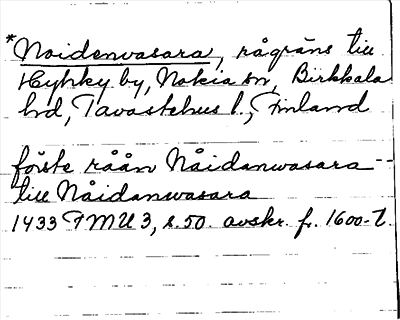 *Noidenvasara, rågräns till
Hyhky by, Nokia sn, Birkkala
hd, Tavastehus l., Finland
förste råån Nåidanwasara --
till Nåidanwasara
1433 FMU 3, s. 50. avskr. fr. 1600-t.